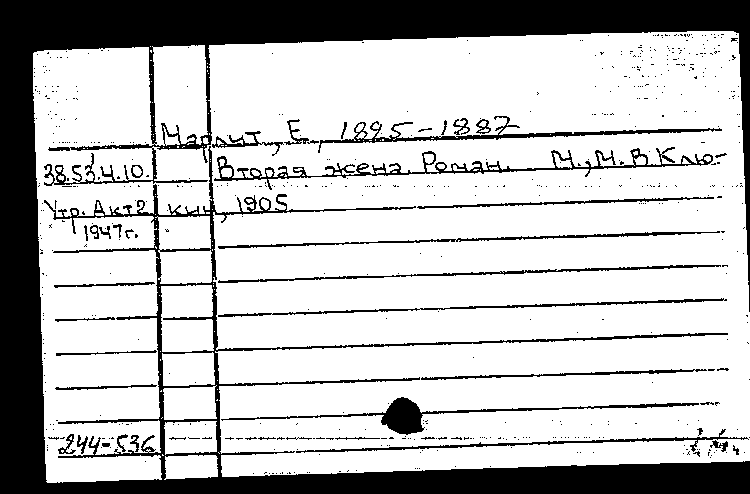 Марлит, Е., 1825-1887
38.53.4.10. Вторая жена. Роман. М., М. В Клю-
Утр. Акт 2 кин, 1905.
1947г.
244-536